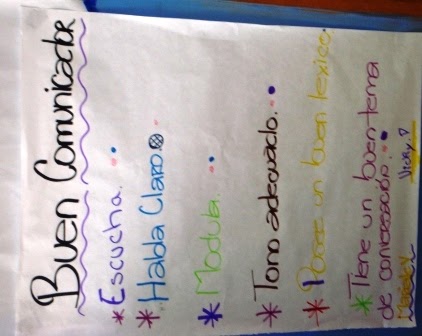 Buen Comunicador
* Escucha.
* Habla Claro
* Modula.
* Tono adecuado.
* Posee un buen lexico.
* Tiene un buen tema
de conversación.
Vicky.P